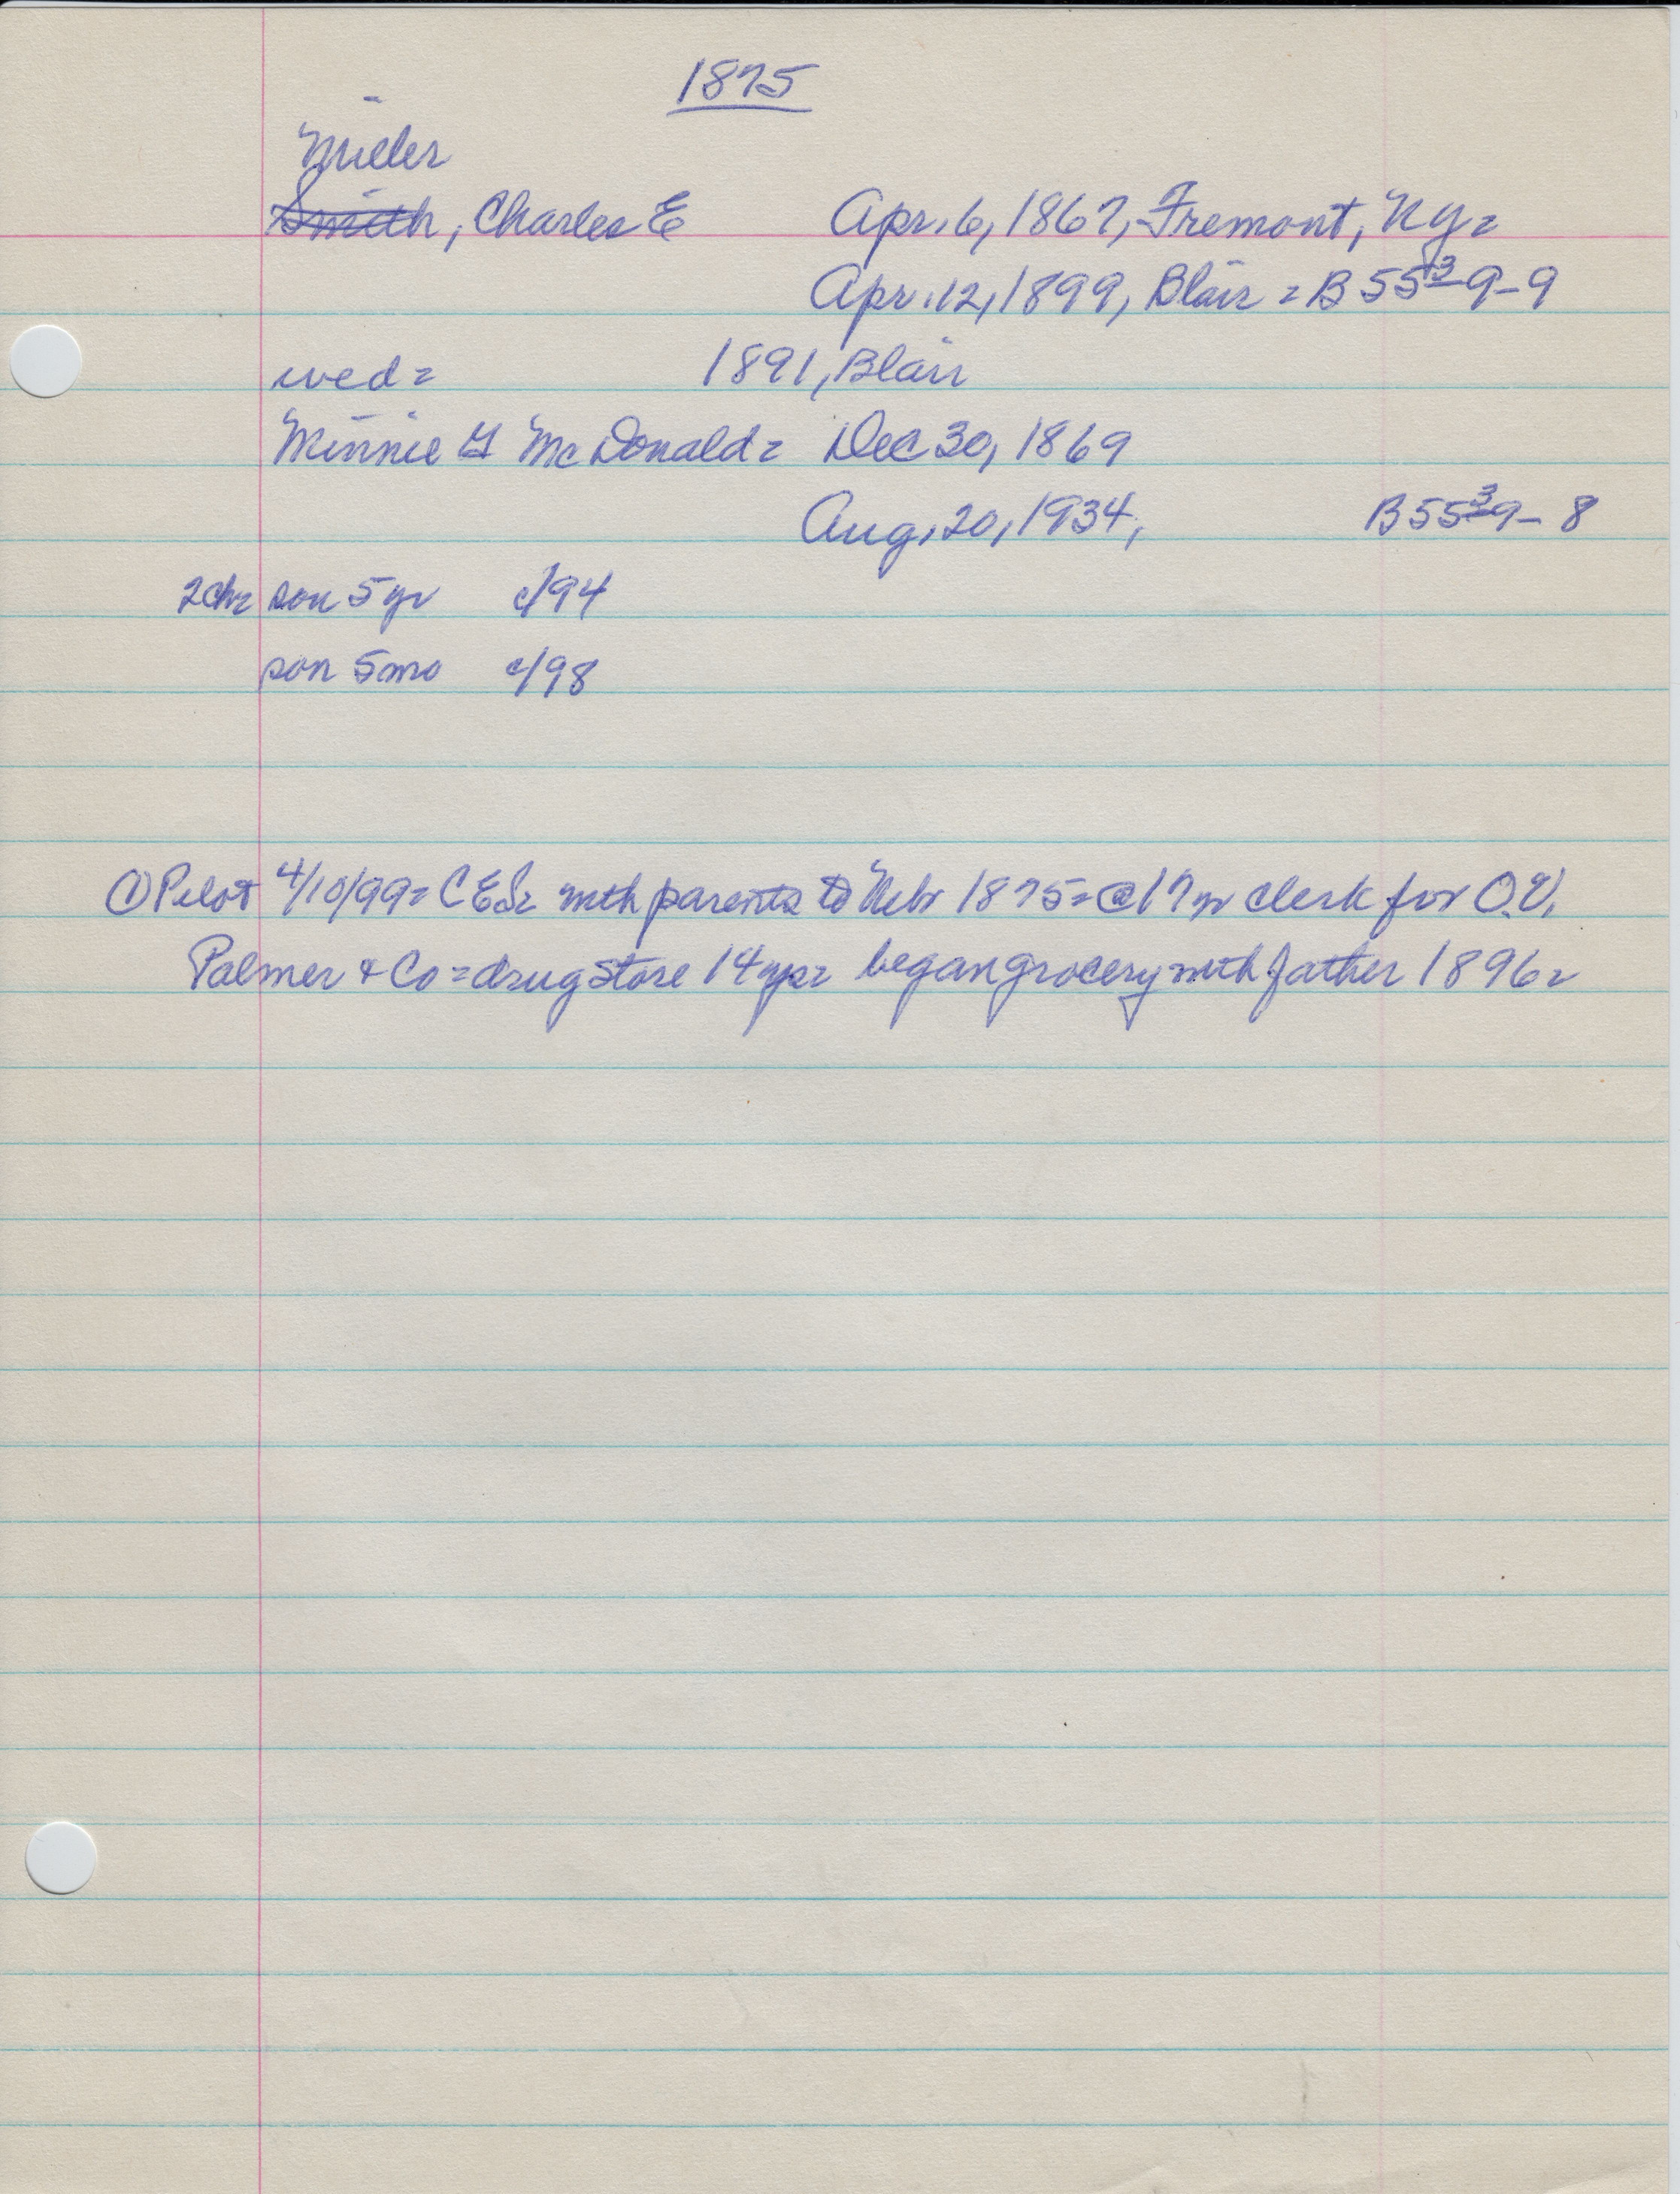 1875
Miller
Smith, Charles E Apr. 6, 1867, Fremont, Ny =
Apr. 12, 1899, Blair = B 55 3 9-9
wed = 1891, Blair
Minnie G McDonald = Dec 30, 1869
Aug, 20, 1934, B 55 3 9-8
2ch = son 5 yr c/94
son 5 mo c/98
① Pilot 4/10/99 = C E S = with parents to Nebr 1875 = @ 17 yr clerk for O.V.
Palmer & Co = drug store 14 yrs = began grocery with father 1896 =